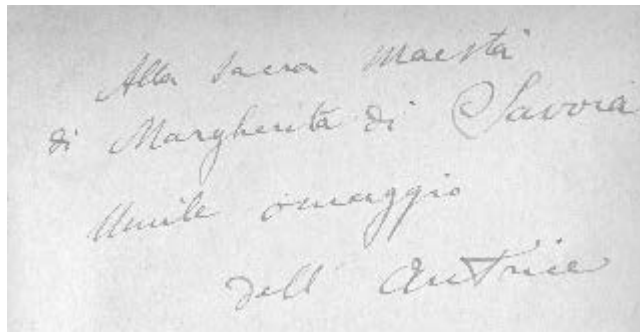 Alla sacra Maestà
di Margherita di Savoia
Umile omaggio
dell' autrice